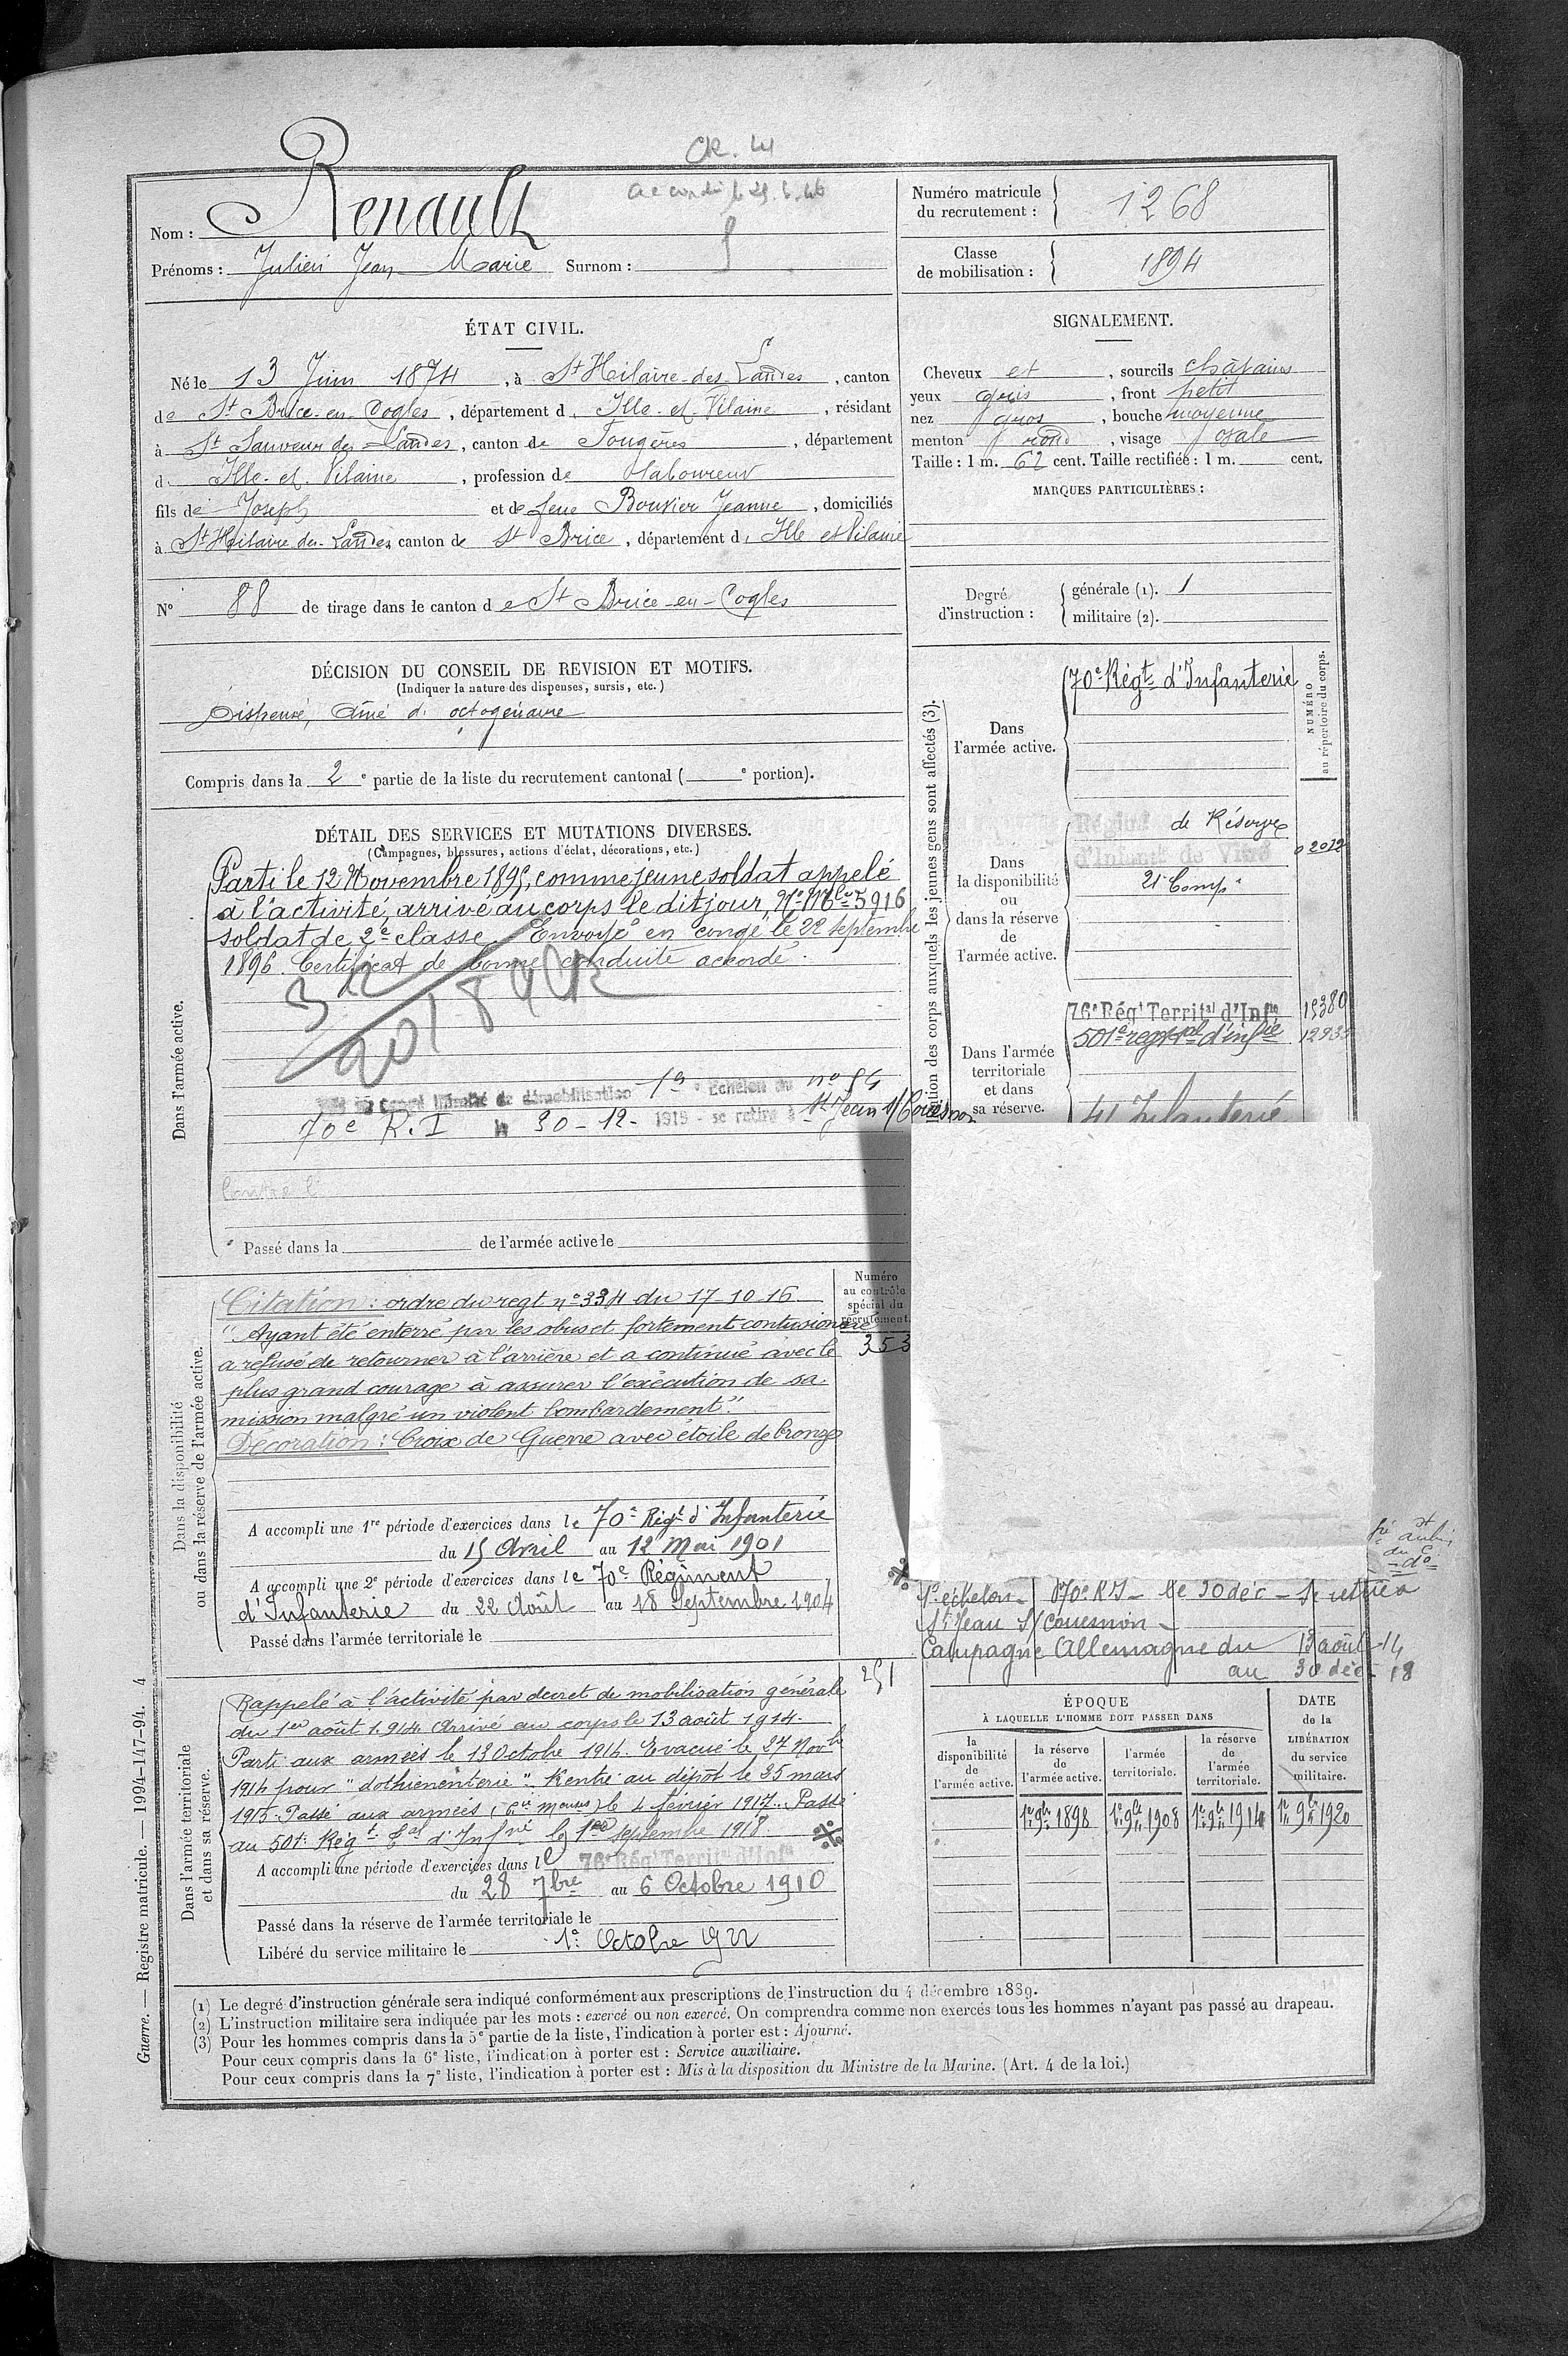 CR. 41
Nom : Renault
Prénoms : Julien Jean Marie Surnom :
Numéro matricule du recrutement : 1268
Classe de mobilisation : 1894
ÉTAT CIVIL.
Né le 13 Juin 1874, à St Hilaire-des-Landes, canton
de St Brice-en-Cogles, département d. Ille-et-Vilaine, résidant
à St Sauveur des Landes, canton de Fougères, département
d. Ille-et-Vilaine, profession de laboureur
fils de Joseph et de feue Bouvier Jeanne, domiciliés
à St Hilaire des-Landes canton de St Brice, département d. Ille et Vilaine
N° 88 de tirage dans le canton de St Brice-en-Cogles
SIGNALEMENT.
Cheveux et, sourcils châtains
yeux gris, front petit
nez gros, bouche moyenne
menton rond, visage ovale
Taille : 1 m. 62 cent. Taille rectifiée : 1 m. cent.
MARQUES PARTICULIÈRES :
Degré d'instruction : générale (1). 1
militaire (2).
DÉCISION DU CONSEIL DE REVISION ET MOTIFS.
(Indiquer la nature des dispenses, sursis, etc.)
Dispensé, aîné d' octogénaire
Compris dans la 2e partie de la liste du recrutement cantonal ( e portion).
DÉTAIL DES SERVICES ET MUTATIONS DIVERSES.
(Campagnes, blessures, actions d'éclat, décorations, etc.)
Dans l'armée active.
Parti le 12 Novembre 1895, comme jeune soldat appelé
à l'activité, arrivé au corps le dit jour, N° Mle 5916
soldat de 2e classe. Envoyé en congé le 22 septembre
1896. Certificat de bonne conduite accordé.
démobilisation 1er Echelon du n° 54
70e R.I le 30-12-1918 - se retire à St Jean s/ Couesnon
Passé dans la de l'armée active le
auxquels les jeunes gens sont affectés (3).
NUMÉRO au répertoire du corps.
Dans l'armée active.
70e Régt d'Infanterie
Dans la disponibilité ou dans la réserve de l'armée active.
de Réserve
d'Infant de Vitré 02012
21e Comp
Dans l'armée territoriale et dans sa réserve.
76e Régt Territal d'Infie 15380
501e regt d'infie
41 Infanterie
Dans la disponibilité ou dans la réserve de l'armée active.
Numéro au contrôle spécial du recrutement. 353
Citation : ordre du regt n° 334 du 17-10-16.
"Ayant été enterré par les obus et fortement contusionné
a refusé de retourner à l'arrière et a continué avec le
plus grand courage à assurer l'exécution de sa
mission malgré un violent bombardement"
Décoration : Croix de Guerre avec étoile de bronze
A accompli une 1re période d'exercices dans le 70e Régt d'Infanterie
du 15 Avril au 12 Mai 1901
A accompli une 2e période d'exercices dans le 70e Régiment
d'Infanterie du 22 Août au 18 Septembre 1904
Passé dans l'armée territoriale le
1er échelon 70e RI - le 30 déc - se retire à
St Jean s/ Couesnon
Campagne Allemagne du 13 août 14
au 30 déc 18
Dans l'armée territoriale et dans sa réserve.
251
Rappelé à l'activité par décret de mobilisation générale
du 1er août 1914 Arrivé au corps le 13 août 1914.
Parti aux armées le 13 Octobre 1914. Evacué le 27 Novbre
1914 pour "dothienenterie". Rentré au dépôt le 25 mars
1915. Passé aux armées le 4 février 1917. Passé
au 501e Régt d'Infrie le 1er septembre 1918.
A accompli une période d'exercices dans le 76e Régt Territal d'Infie
du 28 7bre au 6 Octobre 1910
Passé dans la réserve de l'armée territoriale le
Libéré du service militaire le 1er Octobre 1922
ÉPOQUE À LAQUELLE L'HOMME DOIT PASSER DANS
DATE de la LIBÉRATION du service militaire.
la disponibilité de l'armée active.
la réserve de l'armée active.
l'armée territoriale.
la réserve de l'armée territoriale.
1er 9bre 1898 1er 9bre 1908 1er 9bre 1914 1er 9bre 1920
(1) Le degré d'instruction générale sera indiqué conformément aux prescriptions de l'instruction du 4 décembre 1889.
(2) L'instruction militaire sera indiquée par les mots : exercé ou non exercé. On comprendra comme non exercés tous les hommes n'ayant pas passé au drapeau.
(3) Pour les hommes compris dans la 5e partie de la liste, l'indication à porter est : Ajourné.
Pour ceux compris dans la 6e liste, l'indication à porter est : Service auxiliaire.
Pour ceux compris dans la 7e liste, l'indication à porter est : Mis à la disposition du Ministre de la Marine. (Art. 4 de la loi.)
Guerre. — Registre matricule. — 1994-147-94. 4